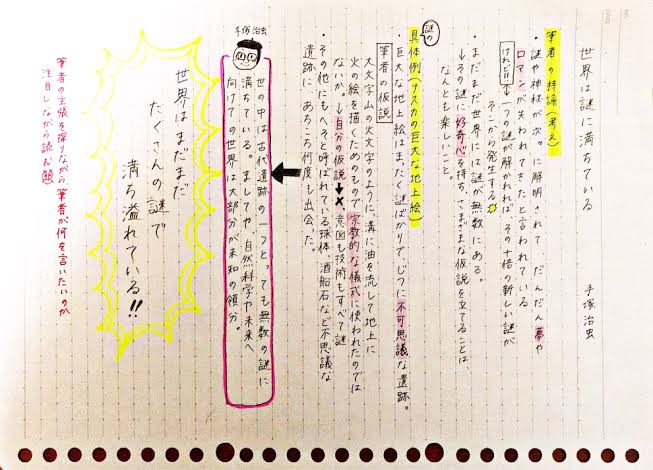 世界は謎に満ちている
手塚治虫
筆者の持論(考え)
・謎や神秘が次々に解明されて だんだん夢や
ロマンが失われてきたと言われている
けれど!!→一つの謎が解かれれば、その十倍の新しい謎が
そこから発生する
・まだまだ世界には謎が無数にある。
↓その謎に好奇心を持ち、さまざまな仮説を立てることは、
なんとも楽しいこと。
謎の
具体例(ナスカの巨大な地上絵)
・巨大な地上絵はまったく謎ばかりで、じつに不可思議な遺跡。
筆者の仮説
大文字山の火文字のように、溝に油を流して地上に
火の絵を描くためのもので宗教的な儀式に使われたのでは
ないか。→自分の仮説→✗、意図も技術もすべて謎
・その他にもへそと呼ばれている球体、酒船石など不思議な
遺跡に、あちこち何度も出会った。
手塚治虫
世の中は古代遺跡の一つとっても無数の謎に
満ちている。ましてや、自然科学や未来へ
向けての世界は大部分が未知の領分。
世界はまだまだ
たくさんの謎で
満ち溢れている!!
筆者の主張を探りながら筆者が何を言いたいのか
注目しながら読む